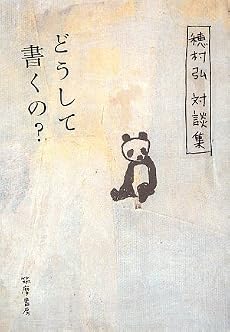 穂村弘 対談集
どうして
書くの?
筑摩書房